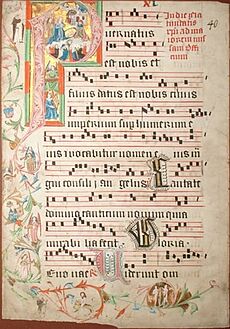 XL
40
Puer natus
est nobis et
filius datus est nobis cuius
imperium sup humerum e
ius uocabitur nomen eius
gni consilii angelus Cantate
domino canticum nouum quia
mirabilia fecit Gloria
Euouae Viderunt om